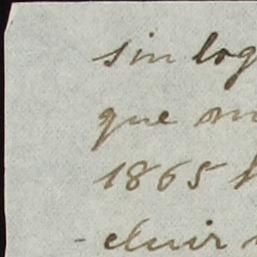 sin log
que m
1865
- cluir